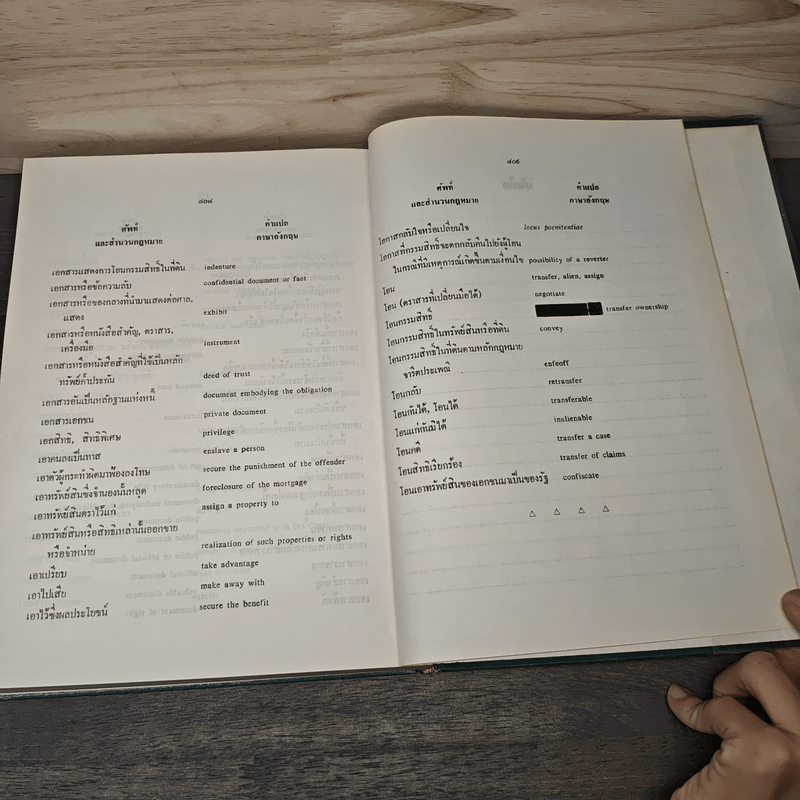 ๙๐๘
ศัพท์ คำแปล
และสำนวนกฎหมาย ภาษาอังกฤษ
เอกสารแสดงการโอนกรรมสิทธิ์ในที่ดิน indenture
เอกสารหรือข้อความลับ confidential document or fact
เอกสารหรือของกลางที่นำมาแสดงต่อศาล,
แสดง exhibit
เอกสารหรือหนังสือสำคัญ, ตราสาร,
เครื่องมือ instrument
เอกสารหรือหนังสือสำคัญที่ใช้เป็นหลัก
ทรัพย์ค้ำประกัน deed of trust
เอกสารอันเป็นหลักฐานแห่งหนี้ document embodying the obligation
เอกสารเอกชน private document
เอกสิทธิ, สิทธิพิเศษ privilege
เอาคนลงเป็นทาส enslave a person
เอาตัวผู้กระทำผิดมาฟ้องลงโทษ secure the punishment of the offender
เอาทรัพย์สินซึ่งจำนองนั้นหลุด foreclosure of the mortgage
เอาทรัพย์สินตราไว้แก่ assign a property to
เอาทรัพย์สินหรือสิทธิเหล่านั้นออกขาย
หรือจำหน่าย realization of such properties or rights
เอาเปรียบ take advantage
เอาไปเสีย make away with
เอาไว้ซึ่งผลประโยชน์ secure the benefit
๙๐๙
ศัพท์ คำแปล
และสำนวนกฎหมาย ภาษาอังกฤษ
โอกาสกลับใจหรือเปลี่ยนใจ locus poenitentiae
โอกาสที่กรรมสิทธิ์จะตกกลับคืนไปยังผู้โอน
ในกรณีที่มีเหตุการณ์เกิดขึ้นตามเงื่อนไข possibility of a reverter
โอน transfer, alien, assign
โอน (ตราสารที่เปลี่ยนมือได้) negotiate
โอนกรรมสิทธิ์ transfer ownership
โอนกรรมสิทธิ์ในทรัพย์สินหรือที่ดิน convey
โอนกรรมสิทธิ์ในที่ดินตามหลักกฎหมาย
จารีตประเพณี enfeoff
โอนกลับ retransfer
โอนกันได้, โอนได้ transferable
โอนแก่กันมิได้ inalienable
โอนคดี transfer a case
โอนสิทธิเรียกร้อง transfer of claims
โอนเอาทรัพย์สินของเอกชนมาเป็นของรัฐ confiscate